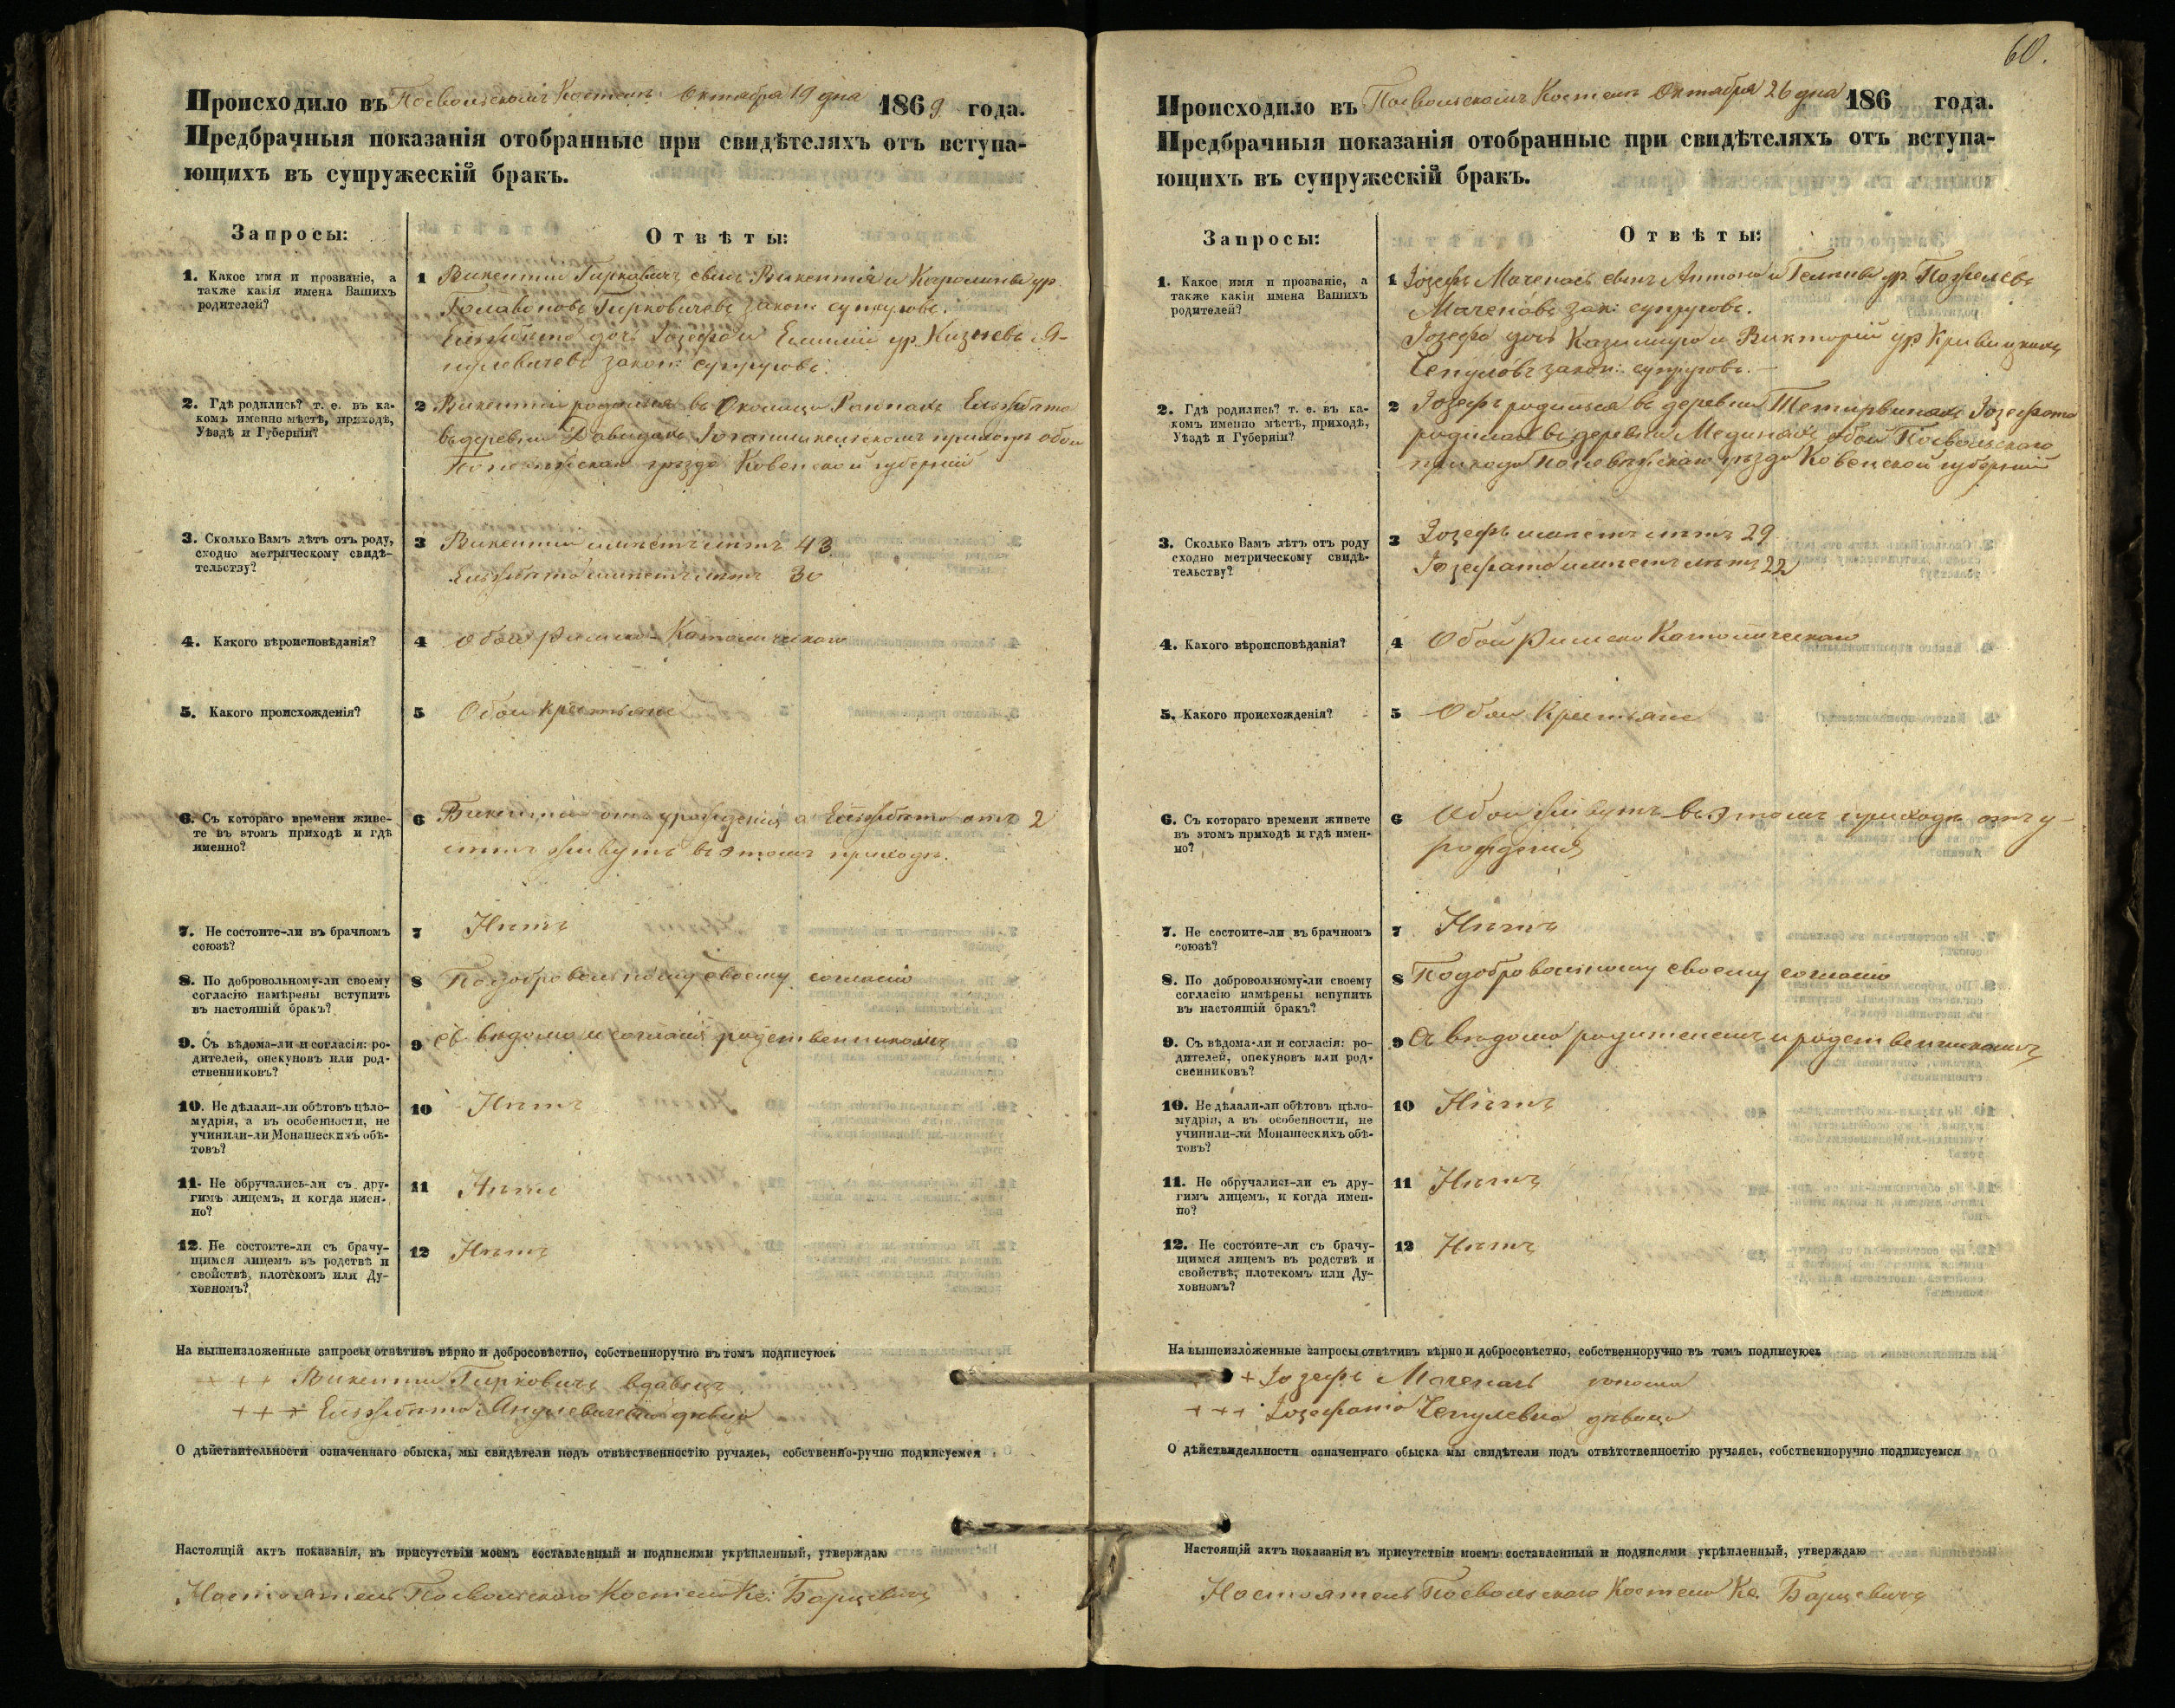 Происходило въ Посвольскомъ Костелѣ Октабра 19 дня 1869 года.
Предбрачныя показанія отобранные при свидѣтеляхъ отъ вступа-
ющихъ въ супружескій бракъ.
Запросы:
Отвѣты:
1. Какое имя и прозваніе, а
также какія имена Вашихъ
родителей?
1 Викентіи Гирковичъ сынъ Викентія и Каролины ур
Гирковичевъ закон: супруговъ.
Елизбѣта дочь Іозефа и Емиліи ур
закон: супруговъ.
2. Гдѣ родились? т. е. въ ка-
комъ именно мѣстѣ, приходѣ,
Уѣздѣ и Губерніи?
2 Викентіи родился въ Околицы Елизбѣта
въ деревни приходѣ обои
Поневѣжскаго уѣзда Ковенской губерніи
3. Сколько Вамъ лѣтъ отъ роду,
сходно метрическому свидѣ-
тельству?
3 Викентіи имѣетъ лѣтъ 43
Елизбѣта имѣетъ лѣтъ 30
4. Какого вѣроисповѣданія?
4 Обои Римско-Католическаго
5. Какого происхожденія?
5 Обои крестьяне
6. Съ котораго времени живе-
те въ этомъ приходѣ и гдѣ
именно?
6 Викентіи отъ урождения а Елизбѣта отъ 2
лѣтъ живутъ въ этомъ приходѣ.
7. Не состоите-ли въ брачномъ
союзѣ?
7 Нѣтъ
8. По добровольному-ли своему
согласію намѣрены вступить
въ настоящій бракъ?
8 По добровольному своему согласію
9. Съ вѣдома-ли и согласія: ро-
дителей, опекуновъ или род-
ственниковъ?
9 Съ вѣдома и согласія родственниковъ
10. Не дѣлали-ли обѣтовъ цѣло-
мудрія, а въ особенности, не
учинили-ли Монашескихъ обѣ-
товъ?
10 Нѣтъ
11. Не обручались-ли съ дру-
гимъ лицемъ, и когда имен-
но?
11 Нѣтъ
12. Не состоите-ли съ брачу-
щимся лицемъ въ родствѣ и
свойствѣ, плотскомъ или Ду-
ховномъ?
12 Нѣтъ
На вышеизложенные запросы отвѣтивъ вѣрно и добросовѣстно, собственноручно въ томъ подписуюсь
+ + + Викентіи Гирковичъ вдовецъ.
+ + + Елизбѣта дѣвица
О дѣйствительности означеннаго обыска, мы свидѣтели подъ отвѣтственностію ручаясь, собственно-ручно подписуемся
Настоящій актъ показанія, въ присутствіи моемъ составленный и подписями укрѣпленный, утверждаю
Настоятель Посвольскаго Костела Кс: Барцевичъ
60.
Происходило въ Посвольскомъ Костелѣ Октабра 26 дня 186 года.
Предбрачныя показанія отобранные при свидѣтеляхъ отъ вступа-
ющихъ въ супружескій бракъ.
Запросы:
Отвѣты:
1. Какое имя и прозваніе, а
также какія имена Вашихъ
родителей?
1 Іозефъ Маченасъ сынъ Антона и ур
Маченовъ зак: супруговъ.
Іозефа дочь Казимира и Викторіи ур Кривицкихъ
Чепуловъ закон: супруговъ.
2. Гдѣ родились? т. е. въ ка-
комъ именно мѣстѣ, приходѣ,
Уѣздѣ и Губерніи?
2 Іозефъ родился въ деревни Іозефата
родилась въ деревни обои Посвольскаго
прихода Поневѣжскаго уѣзда Ковенской губерніи
3. Сколько Вамъ лѣтъ отъ роду
сходно метрическому свидѣ-
тельству?
3 Іозефъ имѣетъ лѣтъ 29
Іозефата имѣетъ лѣтъ 22
4. Какого вѣроисповѣданія?
4 Обои Римско Католическаго
5. Какого происхожденія?
5 Обои Крестьяне
6. Съ котораго времени живете
въ этомъ приходѣ и гдѣ имен-
но?
6 Обои живутъ въ этомъ приходѣ отъ у-
рождения
7. Не состоите-ли въ брачномъ
союзѣ?
7 Нѣтъ
8. По добровольному-ли своему
согласію намѣрены вступить
въ настоящій бракъ?
8 По добровольному своему согласію
9. Съ вѣдома-ли и согласія: ро-
дителей, опекуновъ или род-
свенниковъ?
9 Съ вѣдома родителемъ и родственникамъ
10. Не дѣлали-ли обѣтовъ цѣло-
мудрія, а въ особенности, не
учинили-ли Монашескихъ обѣ-
товъ?
10 Нѣтъ
11. Не обручались-ли съ дру-
гимъ лицемъ, и когда имен-
но?
11 Нѣтъ
12. Не состоите-ли съ брачу-
щимся лицемъ въ родствѣ и
свойствѣ, плотскомъ или Ду-
ховномъ?
12 Нѣтъ
На вышеизложенные запросы отвѣтивъ вѣрно и добросовѣстно, собственноручно въ томъ подписуюсь
+ Іозефъ Маченасъ юноша
+ + + Іозефата Чепулевна дѣвица
О дѣйствидельности означеннаго обыска мы свидѣтели подъ отвѣтственностію ручаясь, собственноручно подписуемся
Настоящій актъ показанія въ присутствіи моемъ составленный и подписями укрѣпленный, утверждаю
Настоятель Посвольскаго Костела Кс. Барцевичъ